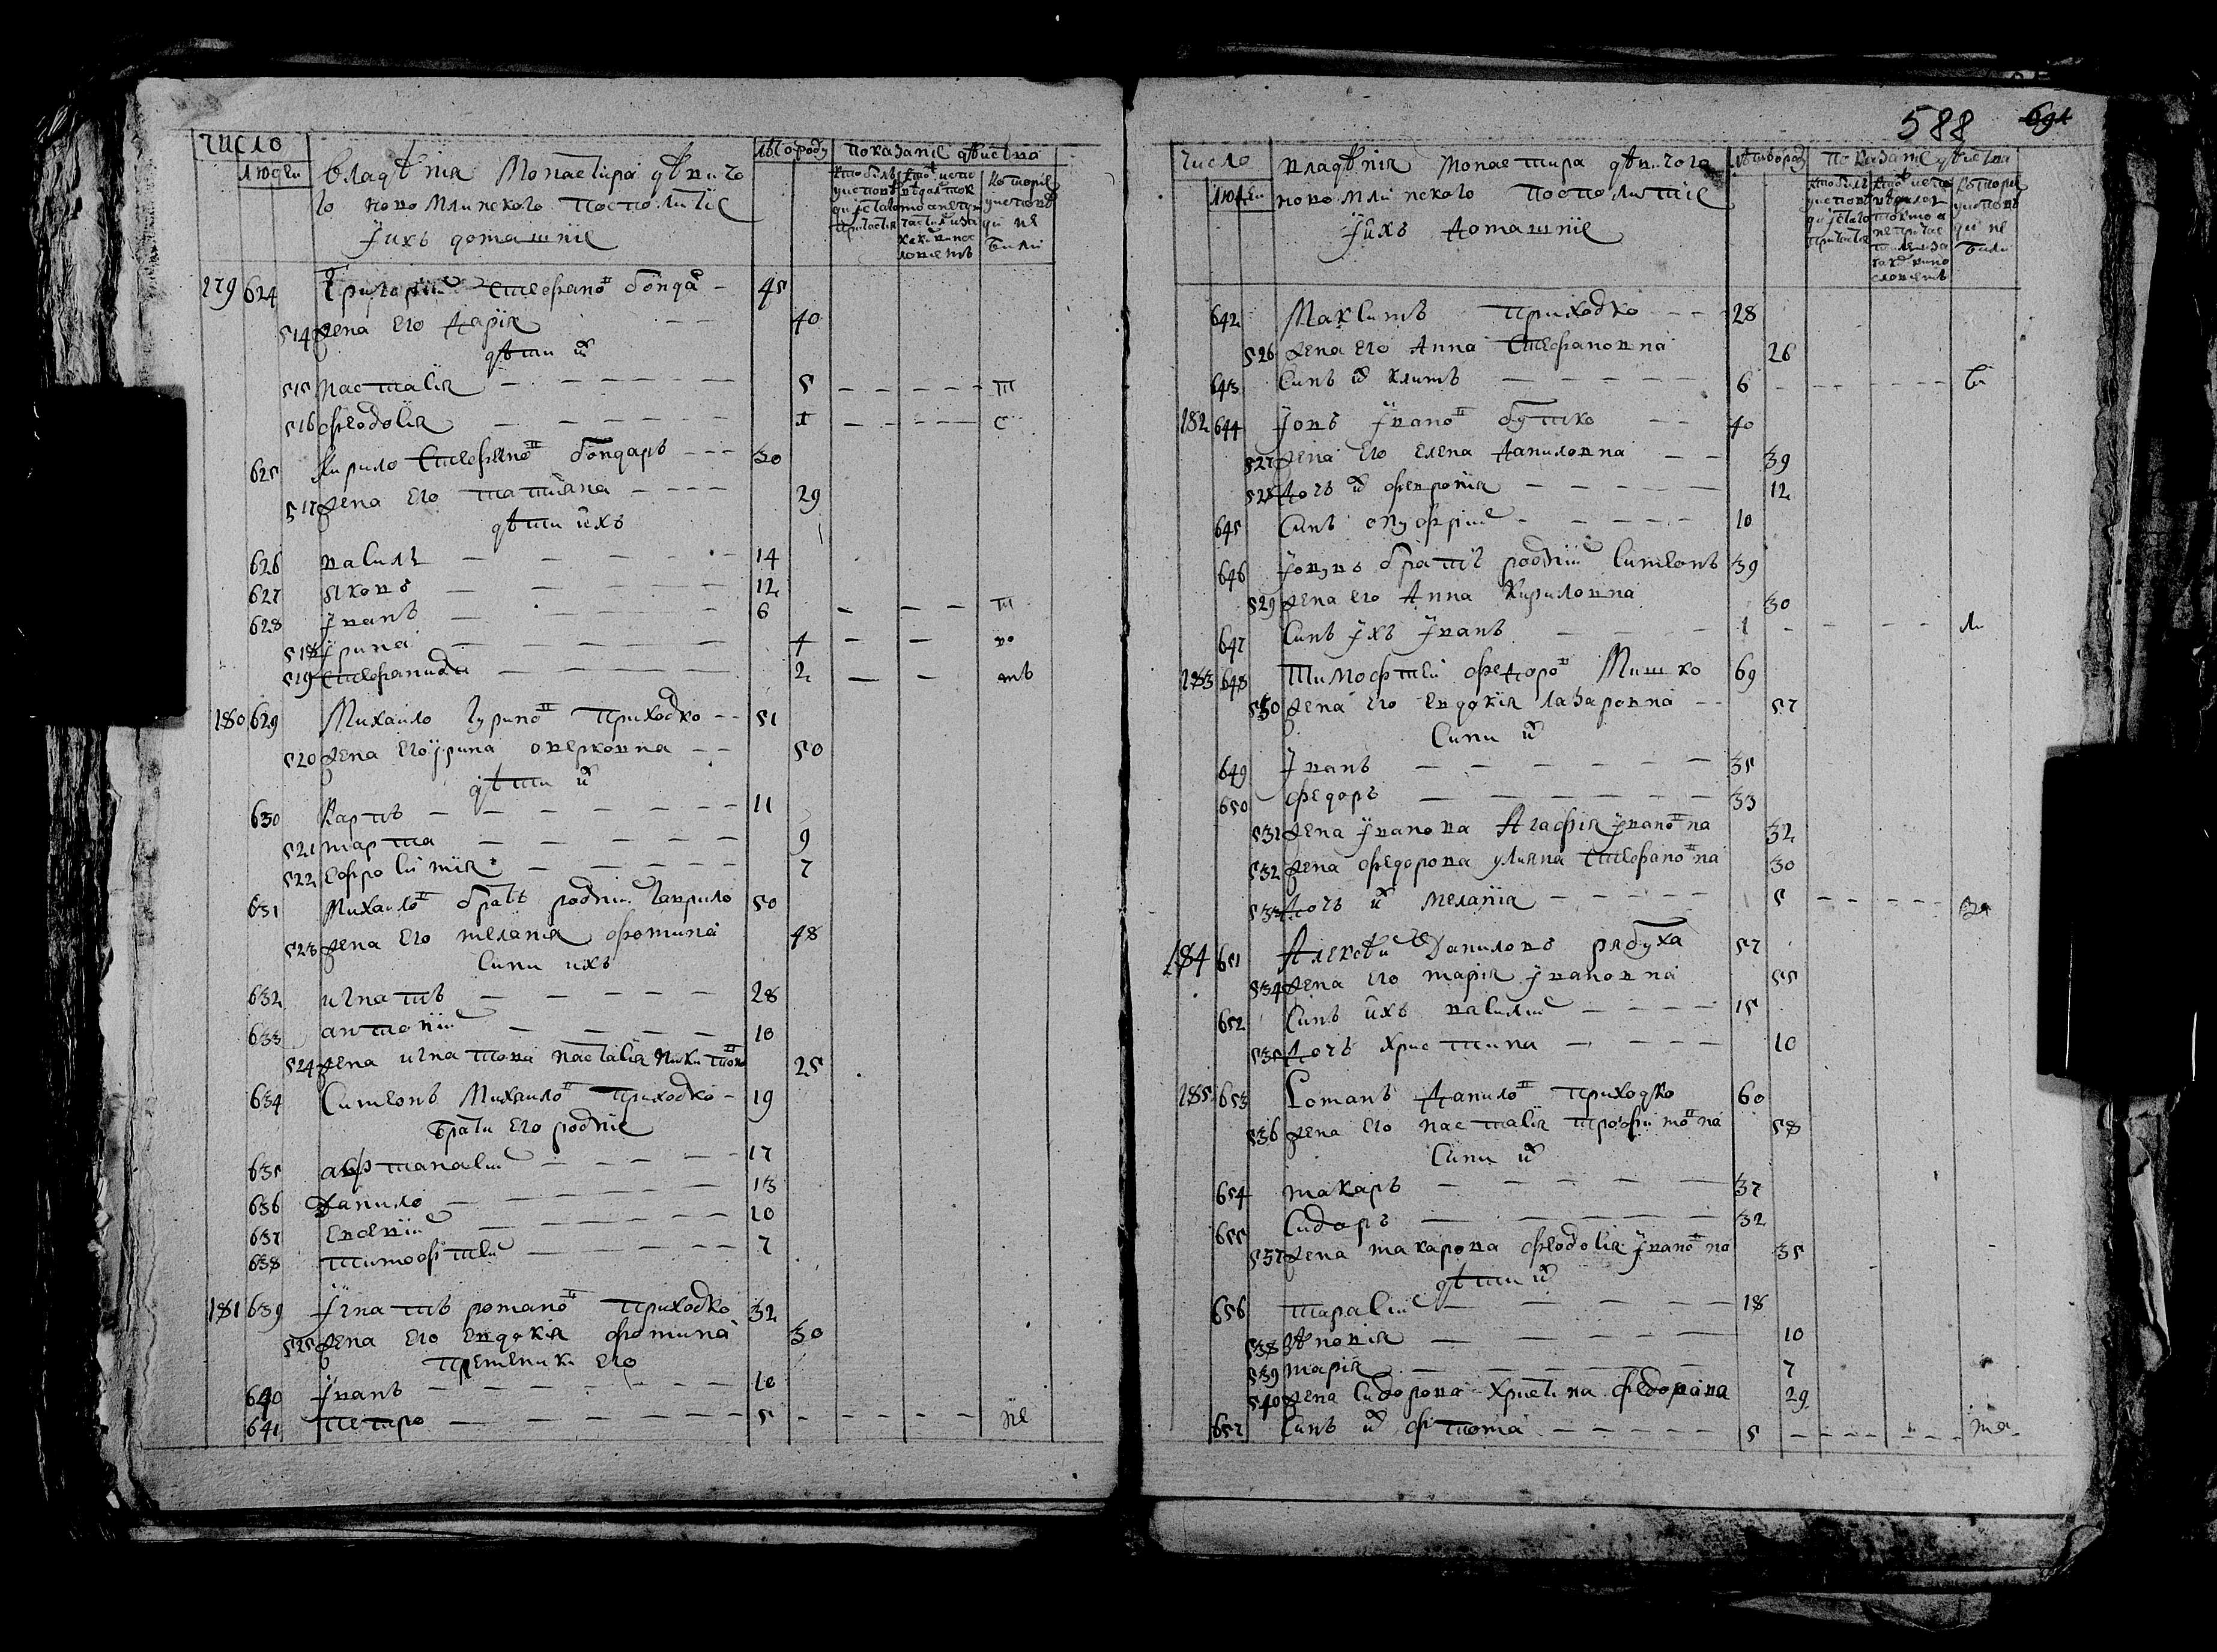 число
людей
владѣния Монастира дѣвичо
го ново Млинского посполитіе
Ӱ ихъ домашніе
лѣтороду
показание дѣиства
которіе
у исповѣ
ди не
били
179 624 Григорий Стефановъ бондар — 45
514 жена его Дария — — 40
дѣти их
515 настасия — — — — — 5 — — — — п
516 феодосия — — — — — — — — с
625 Кирило Стефановъ бондарь — — — 30
517 жена его татияна — — — 29
дѣти ихъ
626 василь — — — — — 14
627 яковъ — — — — — 12
628 Иванъ — — — — 6 — — — п
518 Ирина — — — — — 4 — — во
519 Стефанида — — — — — 2 — — тъ
180 629 Михаило Гуриновъ приходко — — 51
520 жена его Ирина оверковна — — 50
дѣти их
630 Карпъ — — — — — — 11
521 марта — — — — — 9
522 еѳросимия — — — — — 7
631 Михаиловъ братъ родний Гаврило 50
523 жена его мелания фомина 48
Сини ихъ
632 игнатъ — — — — — 28
633 антоний — — — — 10
524 жена игнатова настасия Никитова 25
634 Симеонъ Михаиловъ приходко — 19
Брати его родніе
635 афтанасий — — — — 17
636 Данило — — — — — — 13
637 Евсевий — — — — — 10
638 тимофтей — — — — — 7
181 639 Игнатъ романовъ приходко 32
525 жена его евдокия фомина 30
племеники его
640 Иванъ — — — — — — — 10
641 петро — — — — — — — 5 — — — — — не
588
число
людеи
владѣния монастира дѣвичого
ново млинского посполитіе
Ӱ ихъ домашніе
показание дѣиства
которіе
у исповѣ
ди не
били
642 Максимъ приходко — — — 28
526 жена его Анна Стефановна 26
643 Синъ их климъ — — — — — 6 — — — — — би
182 644 Iовъ Ивановъ бутко — — 40
527 жена его Елена Даниловна — — 39
528 дочъ их феврония — — — — — 12
645 Синъ онуфрий — — — — — 10
646 Iовувъ братъ родний Симеонъ 39
529 жена его Анна Кириловна 30
647 Синъ ихъ Иванъ — — — 1 — — — — ли
183 648 тимофтей федоровъ Мишко 69
530 жена его Евдокия лазаровна — — 57
Сини их
649 Иванъ — — — — — — 35
650 федоръ — — — — — — 33
531 жена Иванова Агафия Ивановна 32
532 жена федорова улияна Стефановна 30
533 дочъ их мелания — — — — — 5 — — — — —
184 651 Алексѣй Даниловъ рябуха 57
534 жена его мария Ивановна 55
652 Синъ ихъ василий — — — — 15
535 дочъ христина — — — — — 10
185 653 Романъ Даниловъ приходко 60
536 жена его настасия трофимовна 58
Сини их
654 макаръ — — — — — 37
655 Сидоръ — — — — — 32
537 жена макарова феодосия Ивановна 35
дѣти их
656 тарасий — — — — — 18
538 зѣновия — — — — — 10
539 мария — — — — — 7
540 жена Сидорова христина федоровна 29
657 Синъ их фтома — — — — — 5 — — — — — — — ма